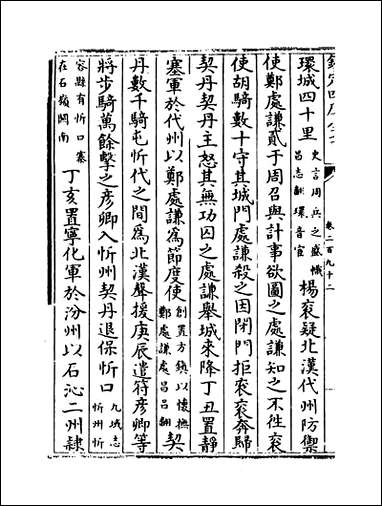 欽定四庫全書
卷二百九十二
環城四十里史言周兵之盛幟昌志翻環音宦楊衮疑北漢代州防禦
使鄭處謙貳于周召與計事欲圖之處謙知之不徃衮
使胡騎數十守其城門處謙殺之因閉門拒衮衮奔歸
契丹契丹主怒其無功囚之處謙舉城來降丁丑置靜
塞軍於代州以鄭處謙為節度使創置方鎮以懷撫鄭處謙處昌呂翻契
丹數千騎屯忻代之間為北漢聲援庚辰遣符彦卿等
將步騎萬餘擊之彦卿入忻州契丹退保忻口九域志忻州忻
容縣有忻口寨在石嶺關南丁亥置寧化軍於汾州以石沁二州隷